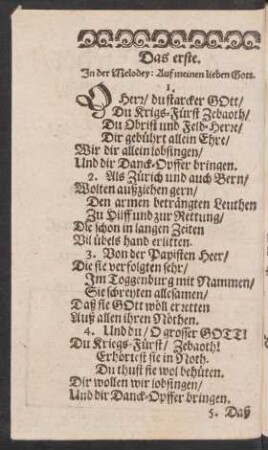 Das erste.
In der Melodey: Auf meinen lieben Gott.
1.
O Herz/ du starcker GOtt/
Du Krigs-Fürst Zebaoth/
Du Obrist und Feld-Herre/
Dir gebührt allein Ehre/
Wir dir allein lobsingen/
Und dir Danck-Opffer bringen.
2. Als Zürich und auch Bern/
Wolten außziehen gern/
Den armen beträngten Leuthen
Zu Hilff und zur Rettung/
Die schon in langen Zeiten
Vil übels hand erlitten.
3. Von der Papisten Heer/
Die sie verfolgten sehr/
Im Toggenburg mit Nammen/
Sie schreyten allesamen/
Daß sie GOtt wöll erretten
Auß allen ihren Nöthen.
4. Und du/ O grosser GOTT!
Du Kriegs-Fürst/ Zebaoth!
Erhörtest sie in Noth.
Du thust sie wol behüten.
Dir wollen wir lobsingen/
Und dir Danck-Opffer bringen.
5. Daß